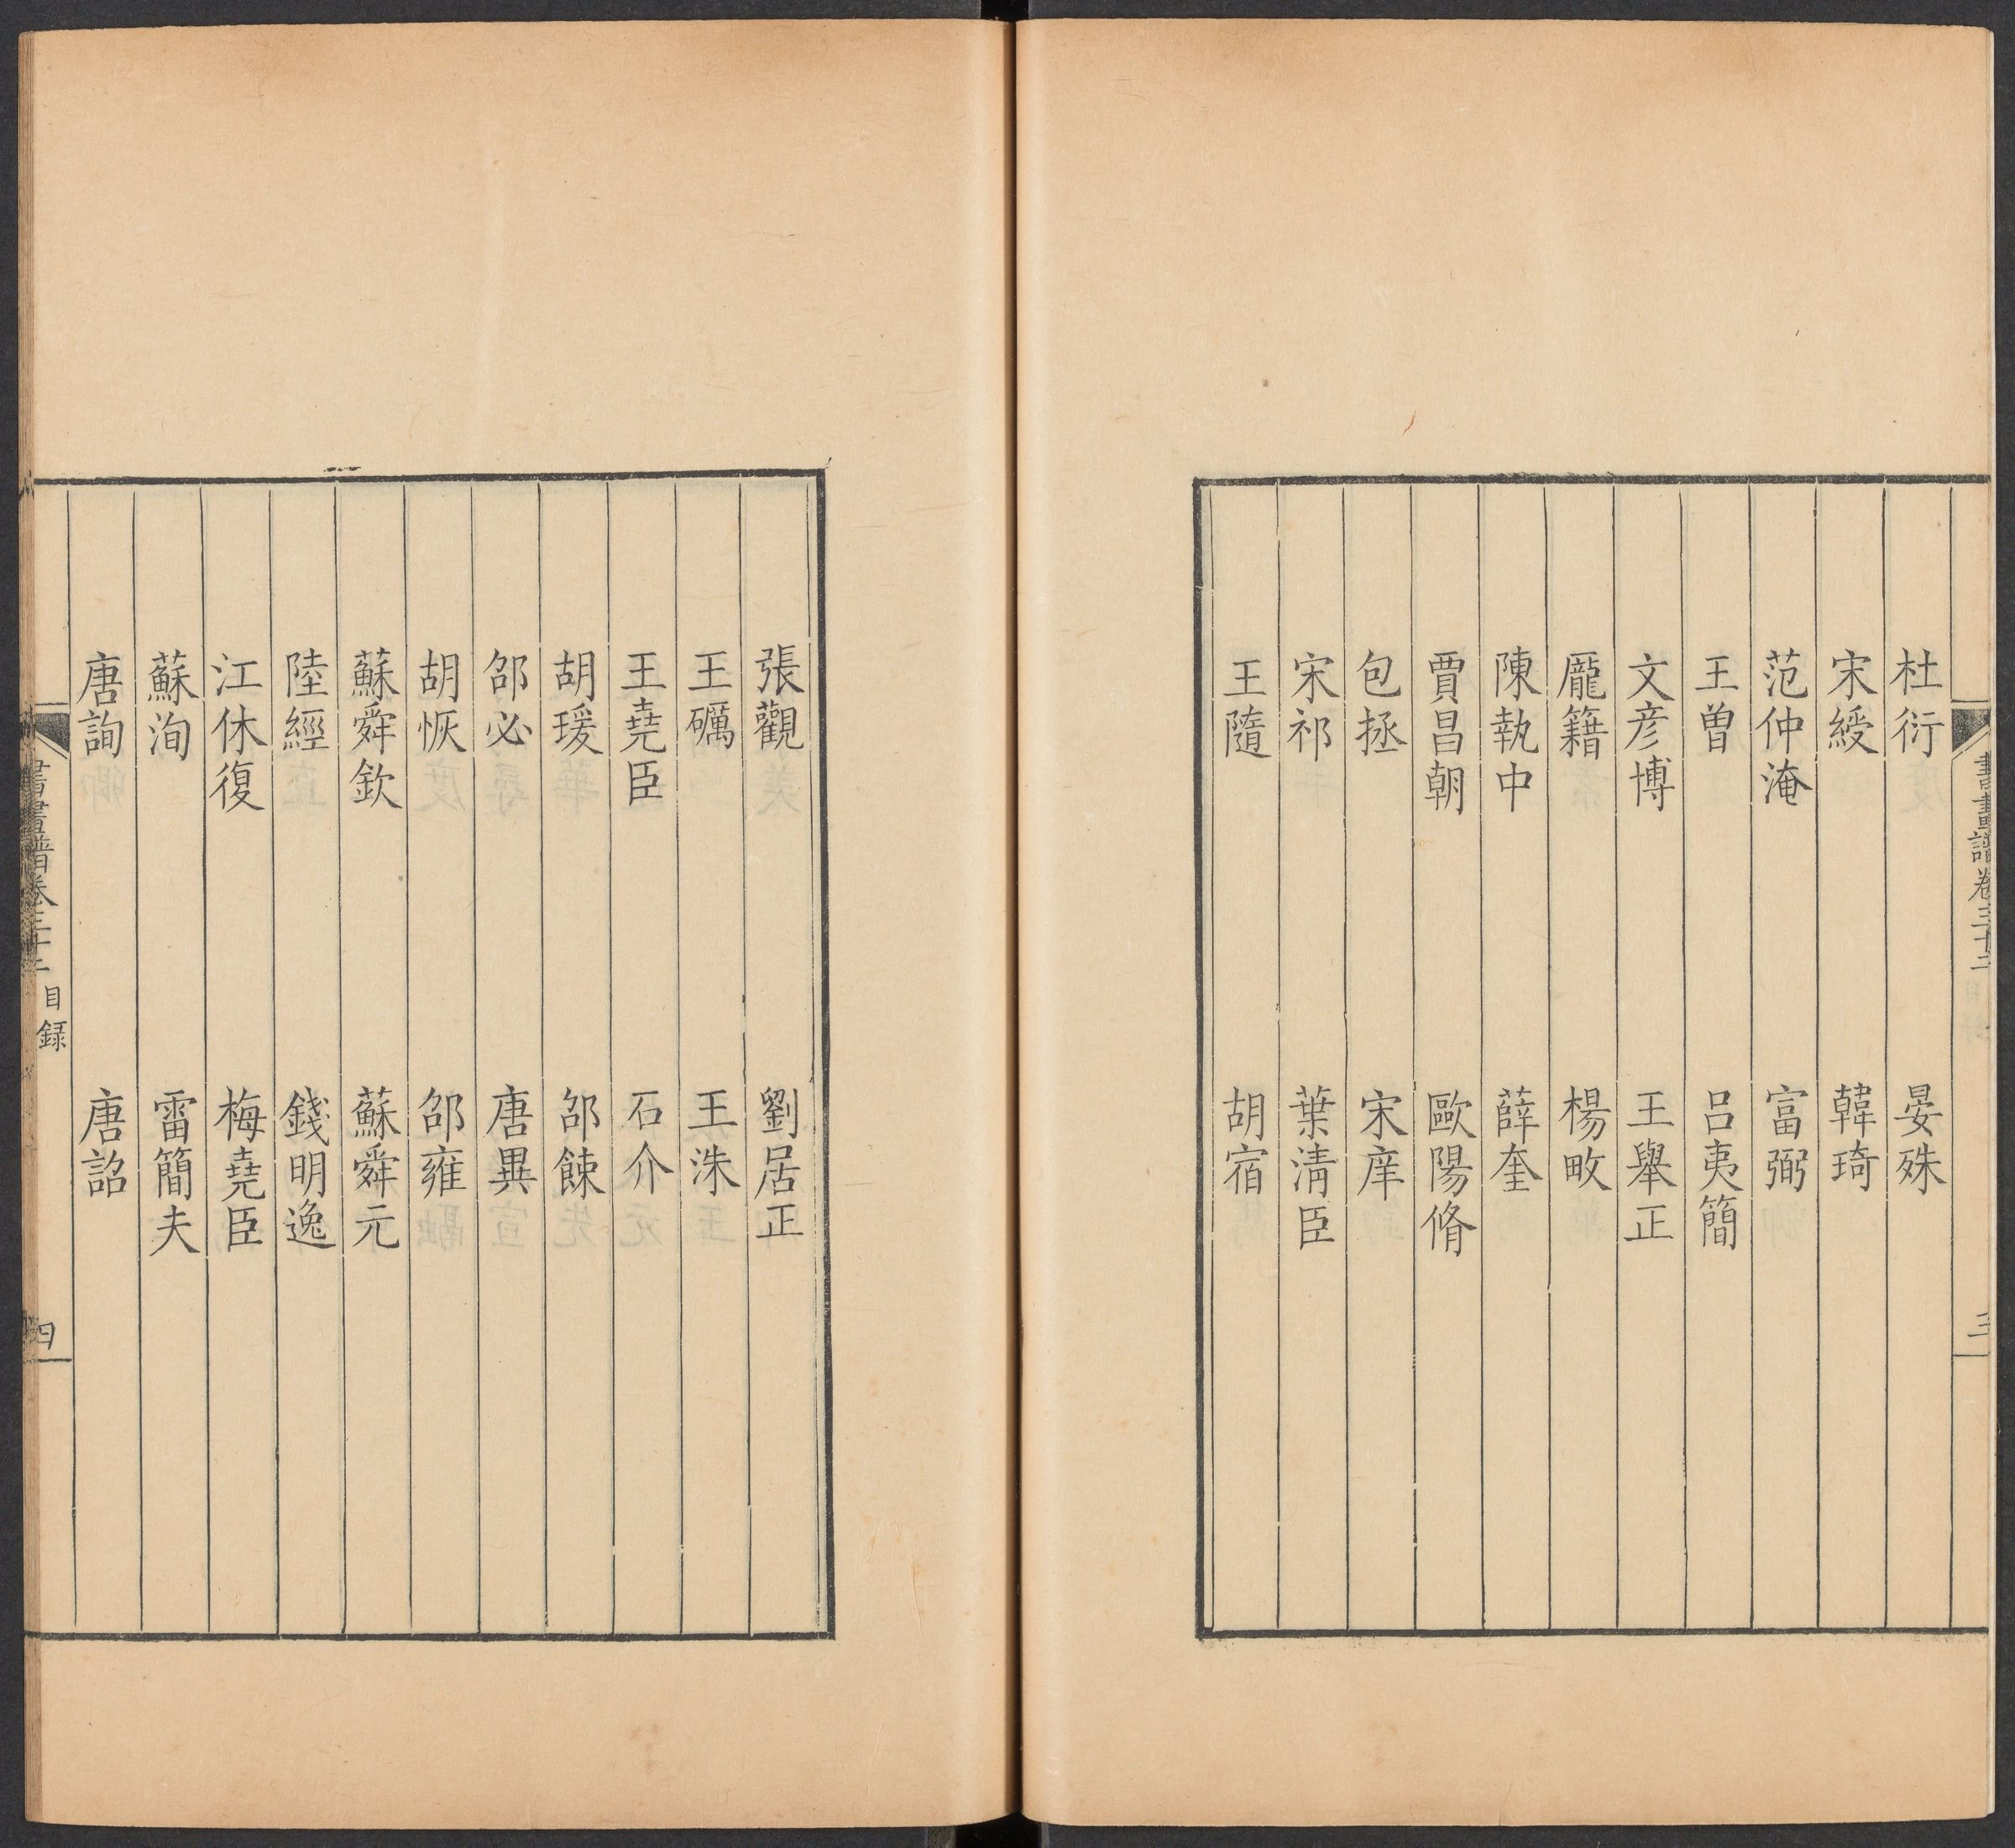 書畫譜卷三十二
三
杜衍 晏殊
宋綬 韓琦
范仲淹 富弼
王曾 呂夷簡
文彦博 王舉正
龐籍 楊畋
陳執中 薛奎
賈昌朝 歐陽脩
包拯 宋庠
宋祁 葉淸臣
王隨 胡宿
張觀 劉居正
王礪 王洙
王堯臣 石介
胡瑗 邵餗
邵必 唐異
胡恢 邵雍
蘇舜欽 蘇舜元
陸經 錢明逸
江休復 梅堯臣
蘇洵 雷簡夫
唐詢 唐詔
書畫譜卷三十二 目録
四